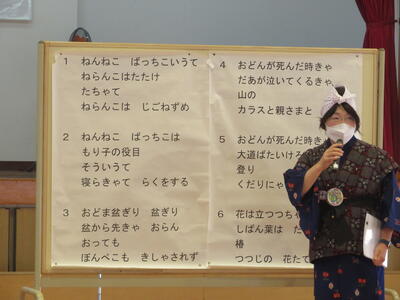 1 ねんねこ ばっちこいうて
ねらんこはたたけ
たちゃて
ねらんこは じごねずめ
2 ねんねこ ばっちこは
もり子の役目
そういうて
寝らきゃて らくをする
3 おどま盆ぎり 盆ぎり
盆から先きゃ おらん
おっても
ぼんべこも きしゃされず
4 おどんが死んだ時きゃ
だあが泣いてくるきゃ
山の
カラスと親さまと
5 おどんが死んだ時きゃ
大道ばたいけろ
登り
くだりにゃ
6 花は立つつちゃ
しばん葉は た
椿
つつじの 花たて